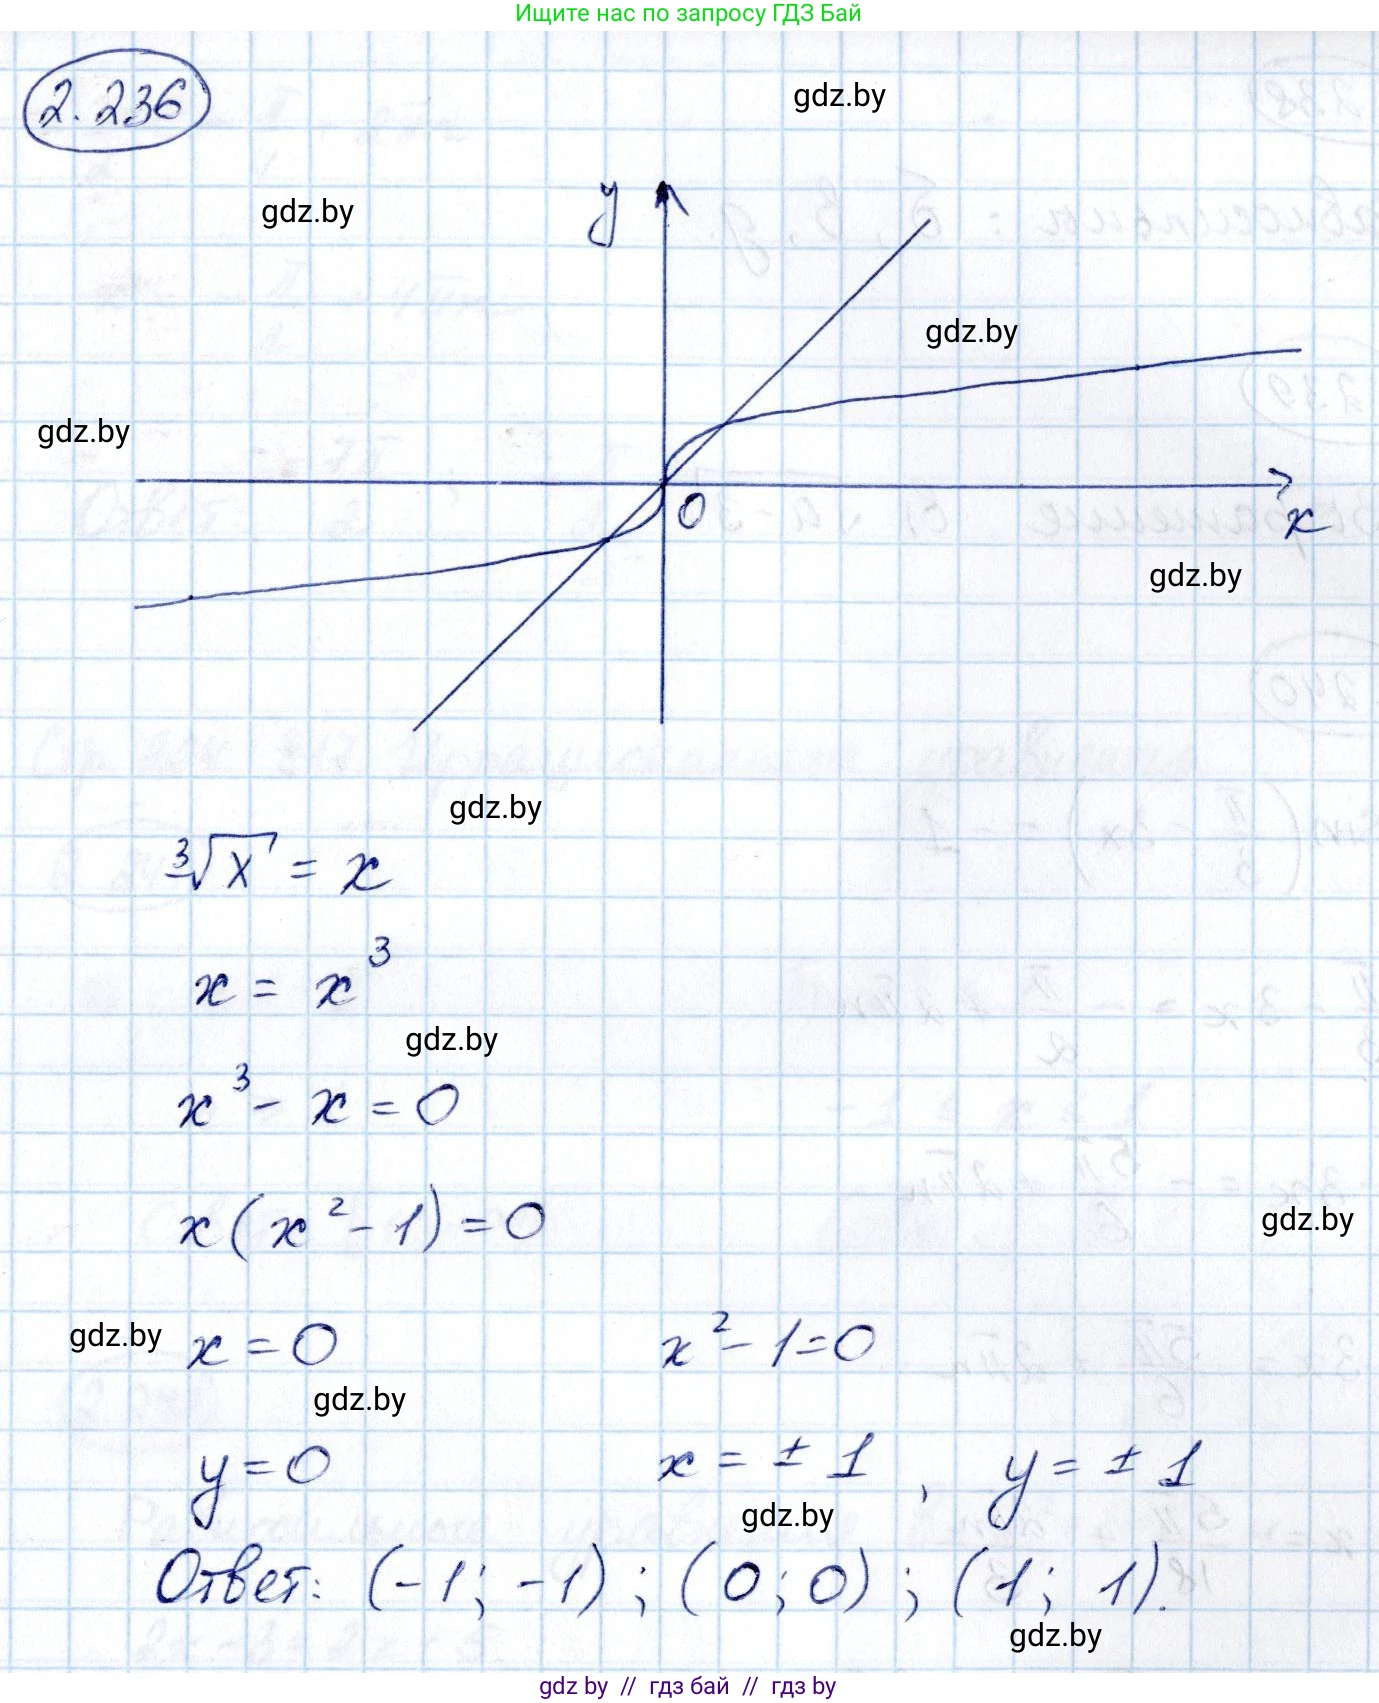 Ищите нас по запросу ГДЗ Бай
2.236
gdz.by
gdz.by
y
gdz.by
gdz.by
0
x
gdz.by
gdz.by
∛x = x
x = x³
gdz.by
x³ - x = 0
x(x² - 1) = 0
gdz.by
gdz.by
x = 0 x² - 1 = 0
gdz.by
y = 0 x = ± 1, y = ± 1
gdz.by
Ответ: (-1; -1); (0; 0); (1; 1).
gdz.by
gdz by // гдз бай // гдз by